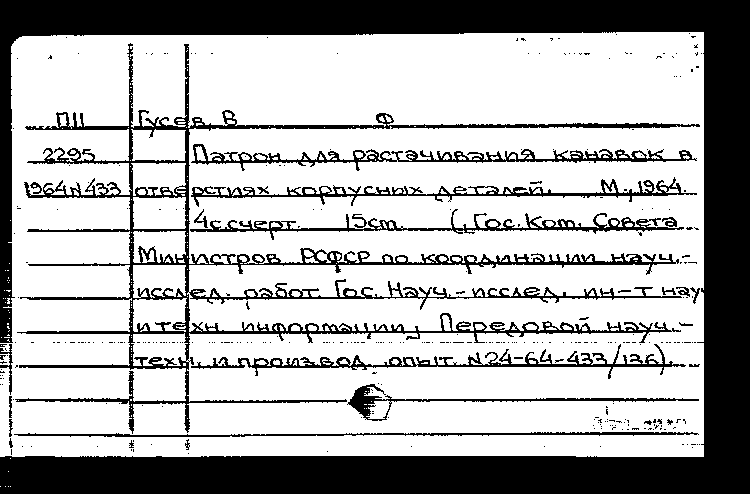 ПII Гусев, В Ф
2295 Патрон для растачивания канавок в
1964 N 433 отверстиях корпусных деталей. М., 1964
4с.счерт. 15cm. (, Гос. Ком. Совета
Министров РСФСР по координации науч.-
исслед. работ. Гос. Науч.-исслед. ин-т нау
и техн. информации, Передовой науч.-
техн. и производ. опыт. N24-64-433/136).